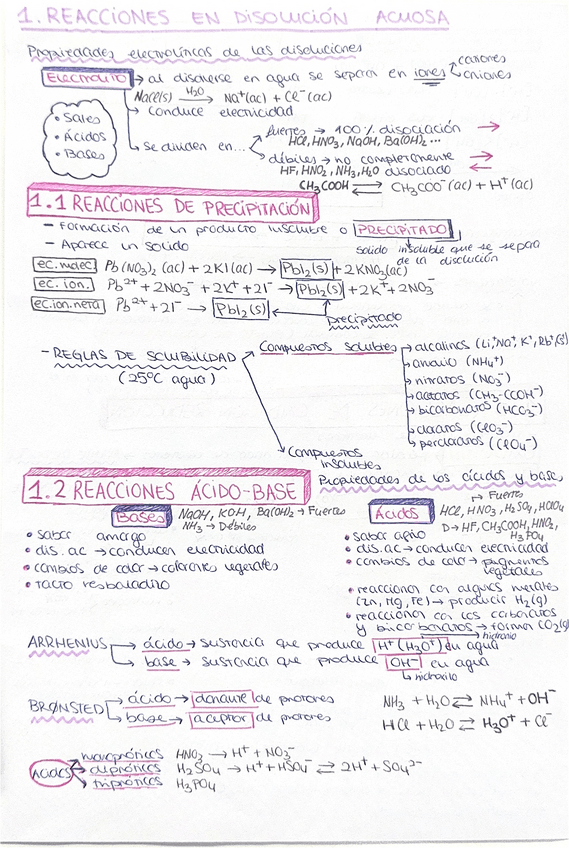 1. REACCIONES EN DISOLUCIÓN ACUOSA
Propiedades electrolíticas de las disoluciones
Electrolito → al disolverse en agua se separan en iones
cationes
aniones
NaCl(s) H₂O → Na⁺(ac) + Cl⁻(ac)
• Sales
• Ácidos
• Bases
Conduce electricidad
Se dividen en...
fuertes → 100% disociación →
HCl, HNO₃, NaOH, Ba(OH)₂...
débiles → no completamente disociado
HF, HNO₂, NH₃, H₂O
CH₃COOH ⇄ CH₃COO⁻(ac) + H⁺(ac)
1.1 REACCIONES DE PRECIPITACIÓN
- Formación de un producto insoluble o PRECIPITADO
- Aparece un sólido
sólido insoluble que se separa
de la disolución
ec. molec Pb(NO₃)₂ (ac) + 2KI(ac) → PbI₂(s) + 2KNO₃(ac)
ec. ion. Pb²⁺ + 2NO₃⁻ + 2K⁺ + 2I⁻ → PbI₂(s) + 2K⁺ + 2NO₃⁻
ec. ion. neta Pb²⁺ + 2I⁻ → PbI₂(s)
Precipitado
- REGLAS DE SOLUBILIDAD
(25ºC agua)
Compuestos solubles
alcalinos (Li⁺, Na⁺, K⁺, Rb⁺,
amonio (NH₄⁺)
nitratos (NO₃⁻)
acetatos (CH₃-COOH⁻)
bicarbonatos (HCO₃⁻)
cloratos (ClO₃⁻)
percloratos (ClO₄⁻)
Compuestos
insolubles
1.2 REACCIONES ÁCIDO-BASE
Propiedades de los ácidos y bases
Bases
NaOH, KOH, Ba(OH)₂ → Fuertes
NH₃ → Débiles
• sabor amargo
• dis. ac → conducen electricidad
• cambios de color → colorantes vegetales
• tacto resbaladizo
Ácidos
→ Fuertes
HCl, HNO₃, H₂SO₄, HClO₄
D → HF, CH₃COOH, HNO₂,
H₃PO₄
• sabor agrio
• dis. ac → conducen electricidad
• cambios de color → pigmentos
vegetales
• reaccionan con algunos metales
(Zn, Mg, Fe) → producir H₂(g)
• reaccionan con los carbonatos
y bicarbonatos → forman CO₂(g)
ARRHENIUS
ácido → sustancia que produce H⁺(H₃O⁺) en agua
hidronio
base → sustancia que produce OH⁻ en agua
hidroxilo
BRØNSTED
ácido → donante de protones
base → aceptor de protones
NH₃ + H₂O ⇄ NH₄⁺ + OH⁻
HCl + H₂O ⇄ H₃O⁺ + Cl⁻
Ácidos
monopróticos HNO₂ → H⁺ + NO₃⁻
dipróticos H₂SO₄ → H⁺ + HSO₄⁻ ⇄ 2H⁺ + SO₄²⁻
tripróticos H₃PO₄